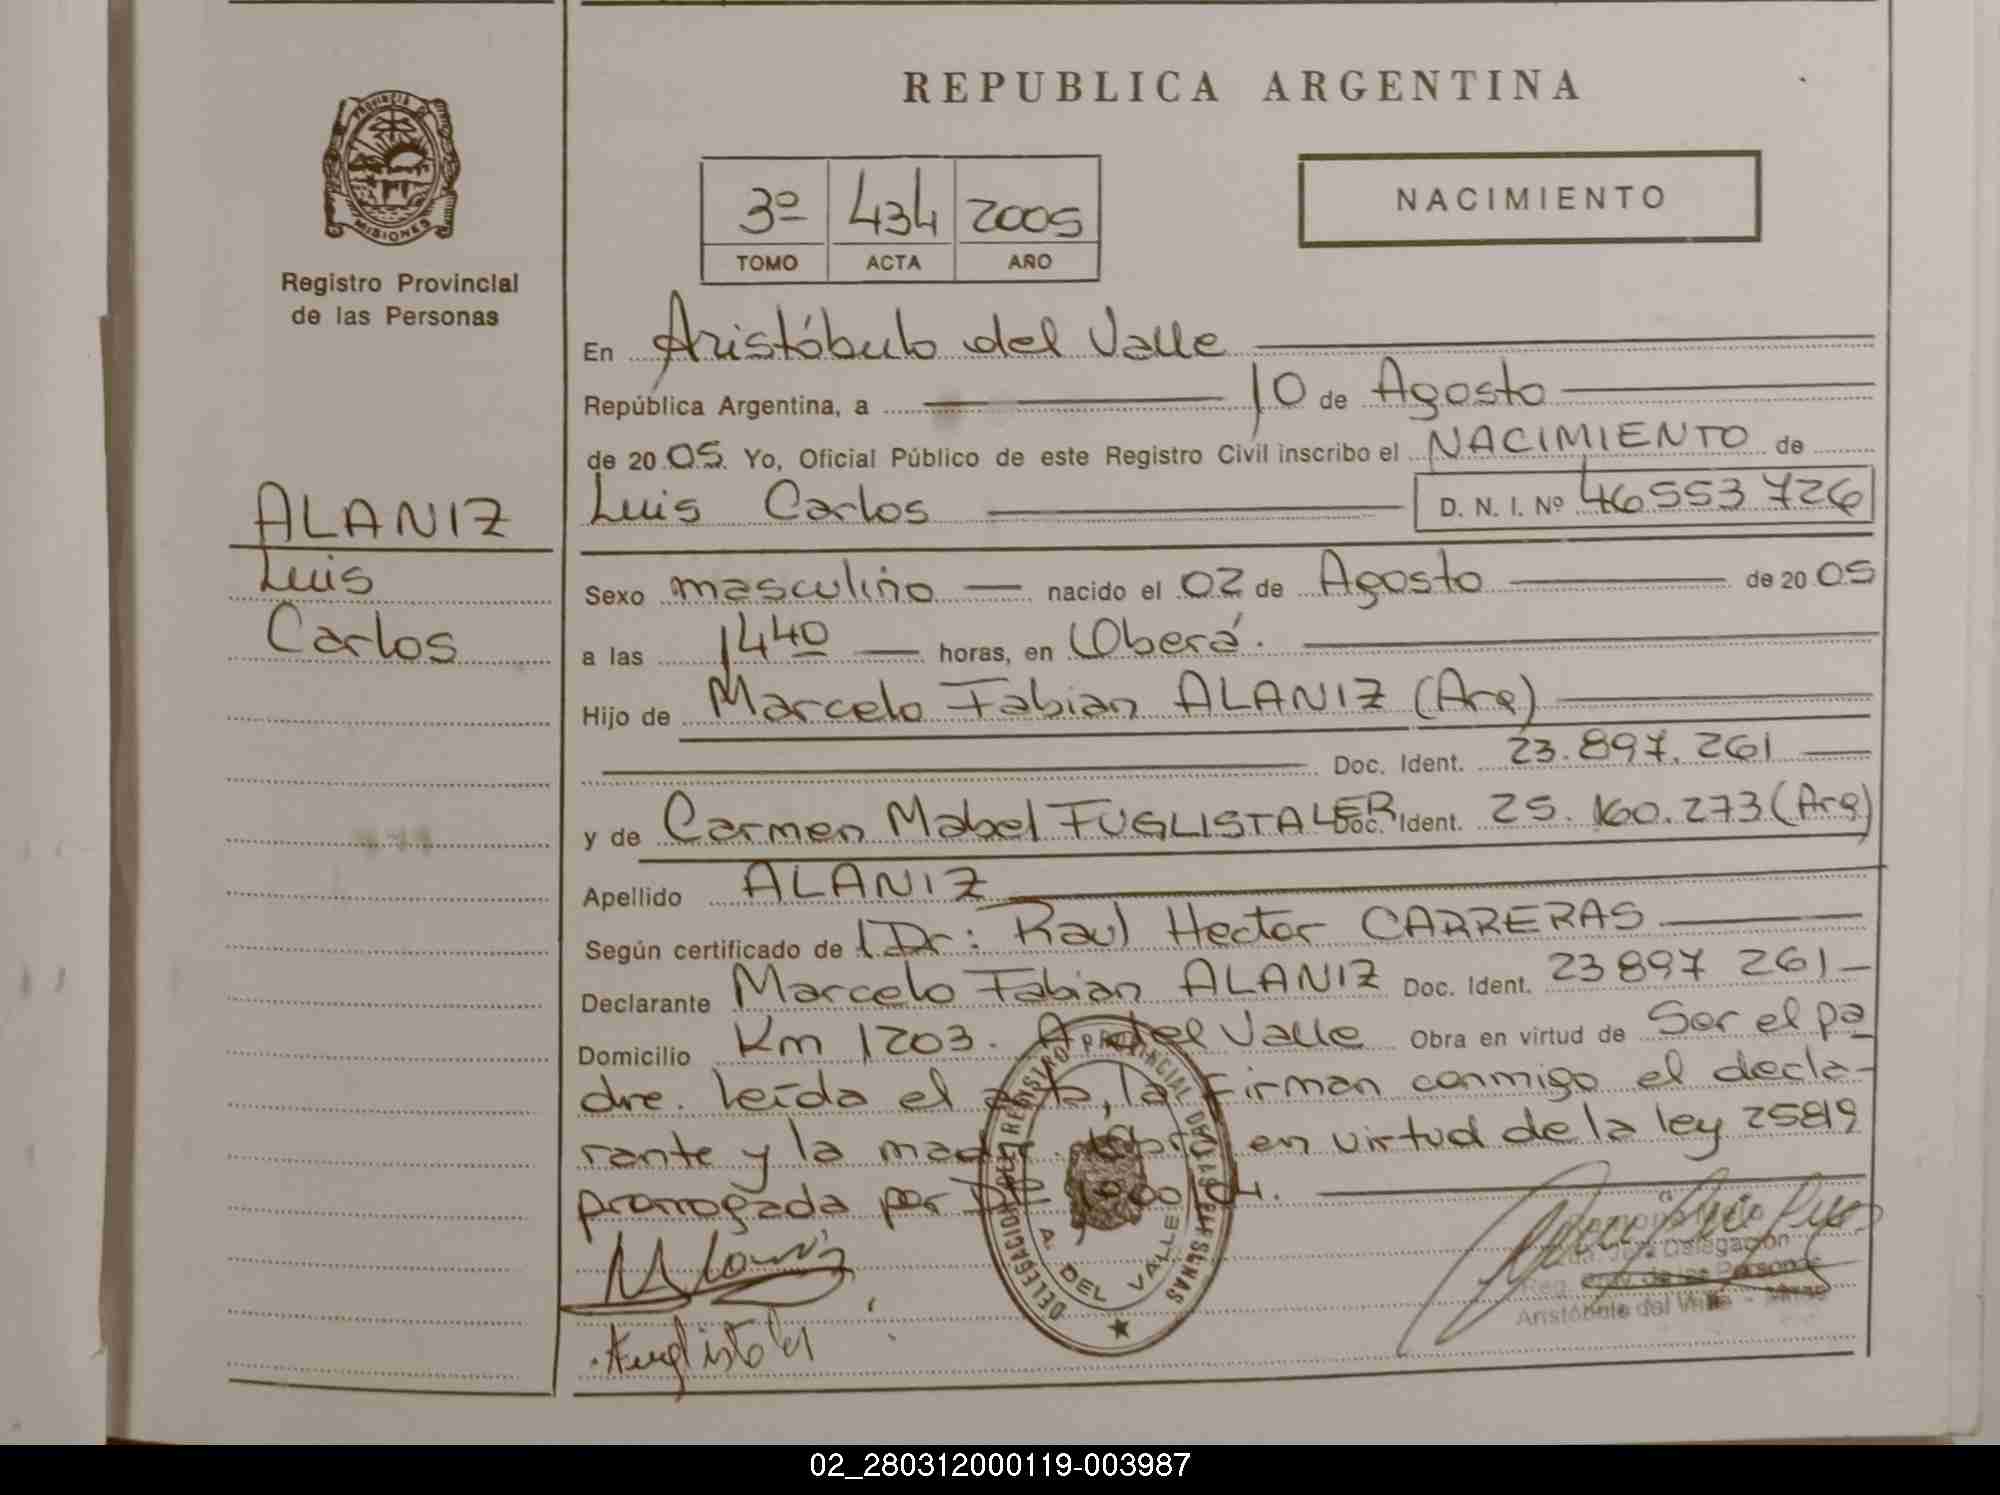 REPUBLICA ARGENTINA
PROVINCIA D MISIONES
Registro Provincial
de las Personas
3º 434 2005
TOMO ACTA AÑO
NACIMIENTO
ALANIZ
Luis
Carlos
En Aristóbulo del Valle
República Argentina, a 10 de Agosto
de 2005. Yo, Oficial Público de este Registro Civil inscribo el NACIMIENTO de
Luis Carlos D. N. I. Nº 46553726
Sexo masculino nacido el 02 de Agosto de 2005
a las 14 40 horas, en Oberá.
Hijo de Marcelo Fabian ALANIZ (Arg)
Doc. Ident. 23.897.261
y de Carmen Mabel FUGLISTALER Doc. Ident. 25.160.273 (Arg)
Apellido ALANIZ
Según certificado de Dr: Raul Hector CARRERAS
Declarante Marcelo Fabian ALANIZ Doc. Ident. 23 897 261
Domicilio Km 1203. A. del Valle Obra en virtud de Ser el pa
dre. Leída el acta, la firman conmigo el decla-
rante y la madre. en virtud de la ley 25819
prorrogada por
DELEGACION REGISTRO PROVINCIAL DE LAS PERSONAS
A. DEL VALLE
Delegación
Reg. de las Personas
Aristóbulo del Valle - Mnes
02_280312000119-003987